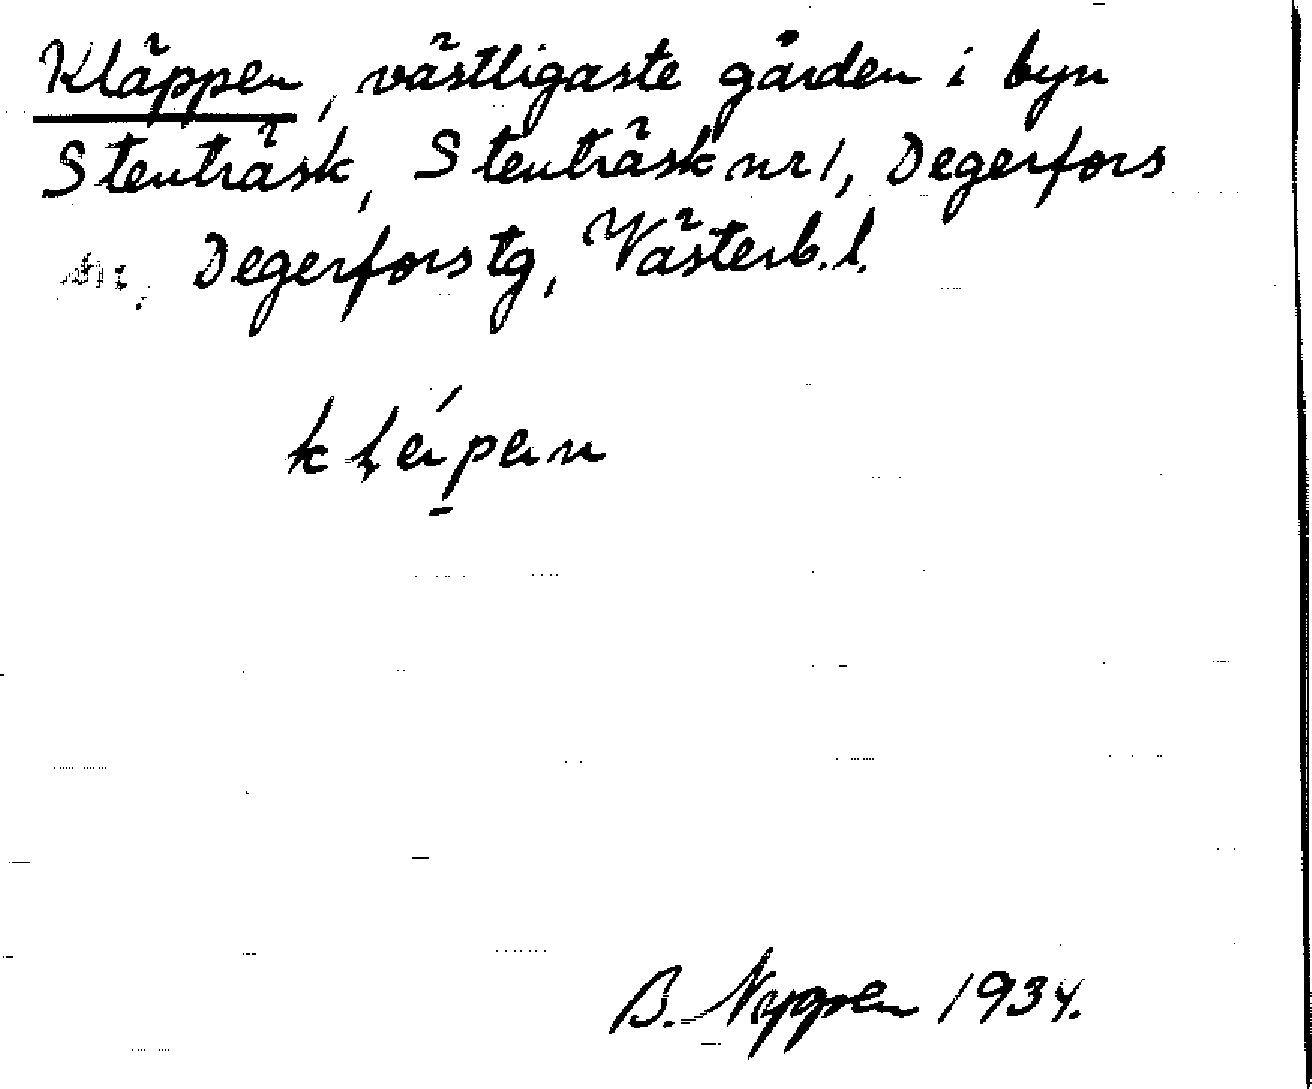 Kläppen, västligaste gården i byn
Stenträsk, Stenträsk nr 1, Degerfors
Degerfors tg, Västerb. l.
B. Nygren 1934.